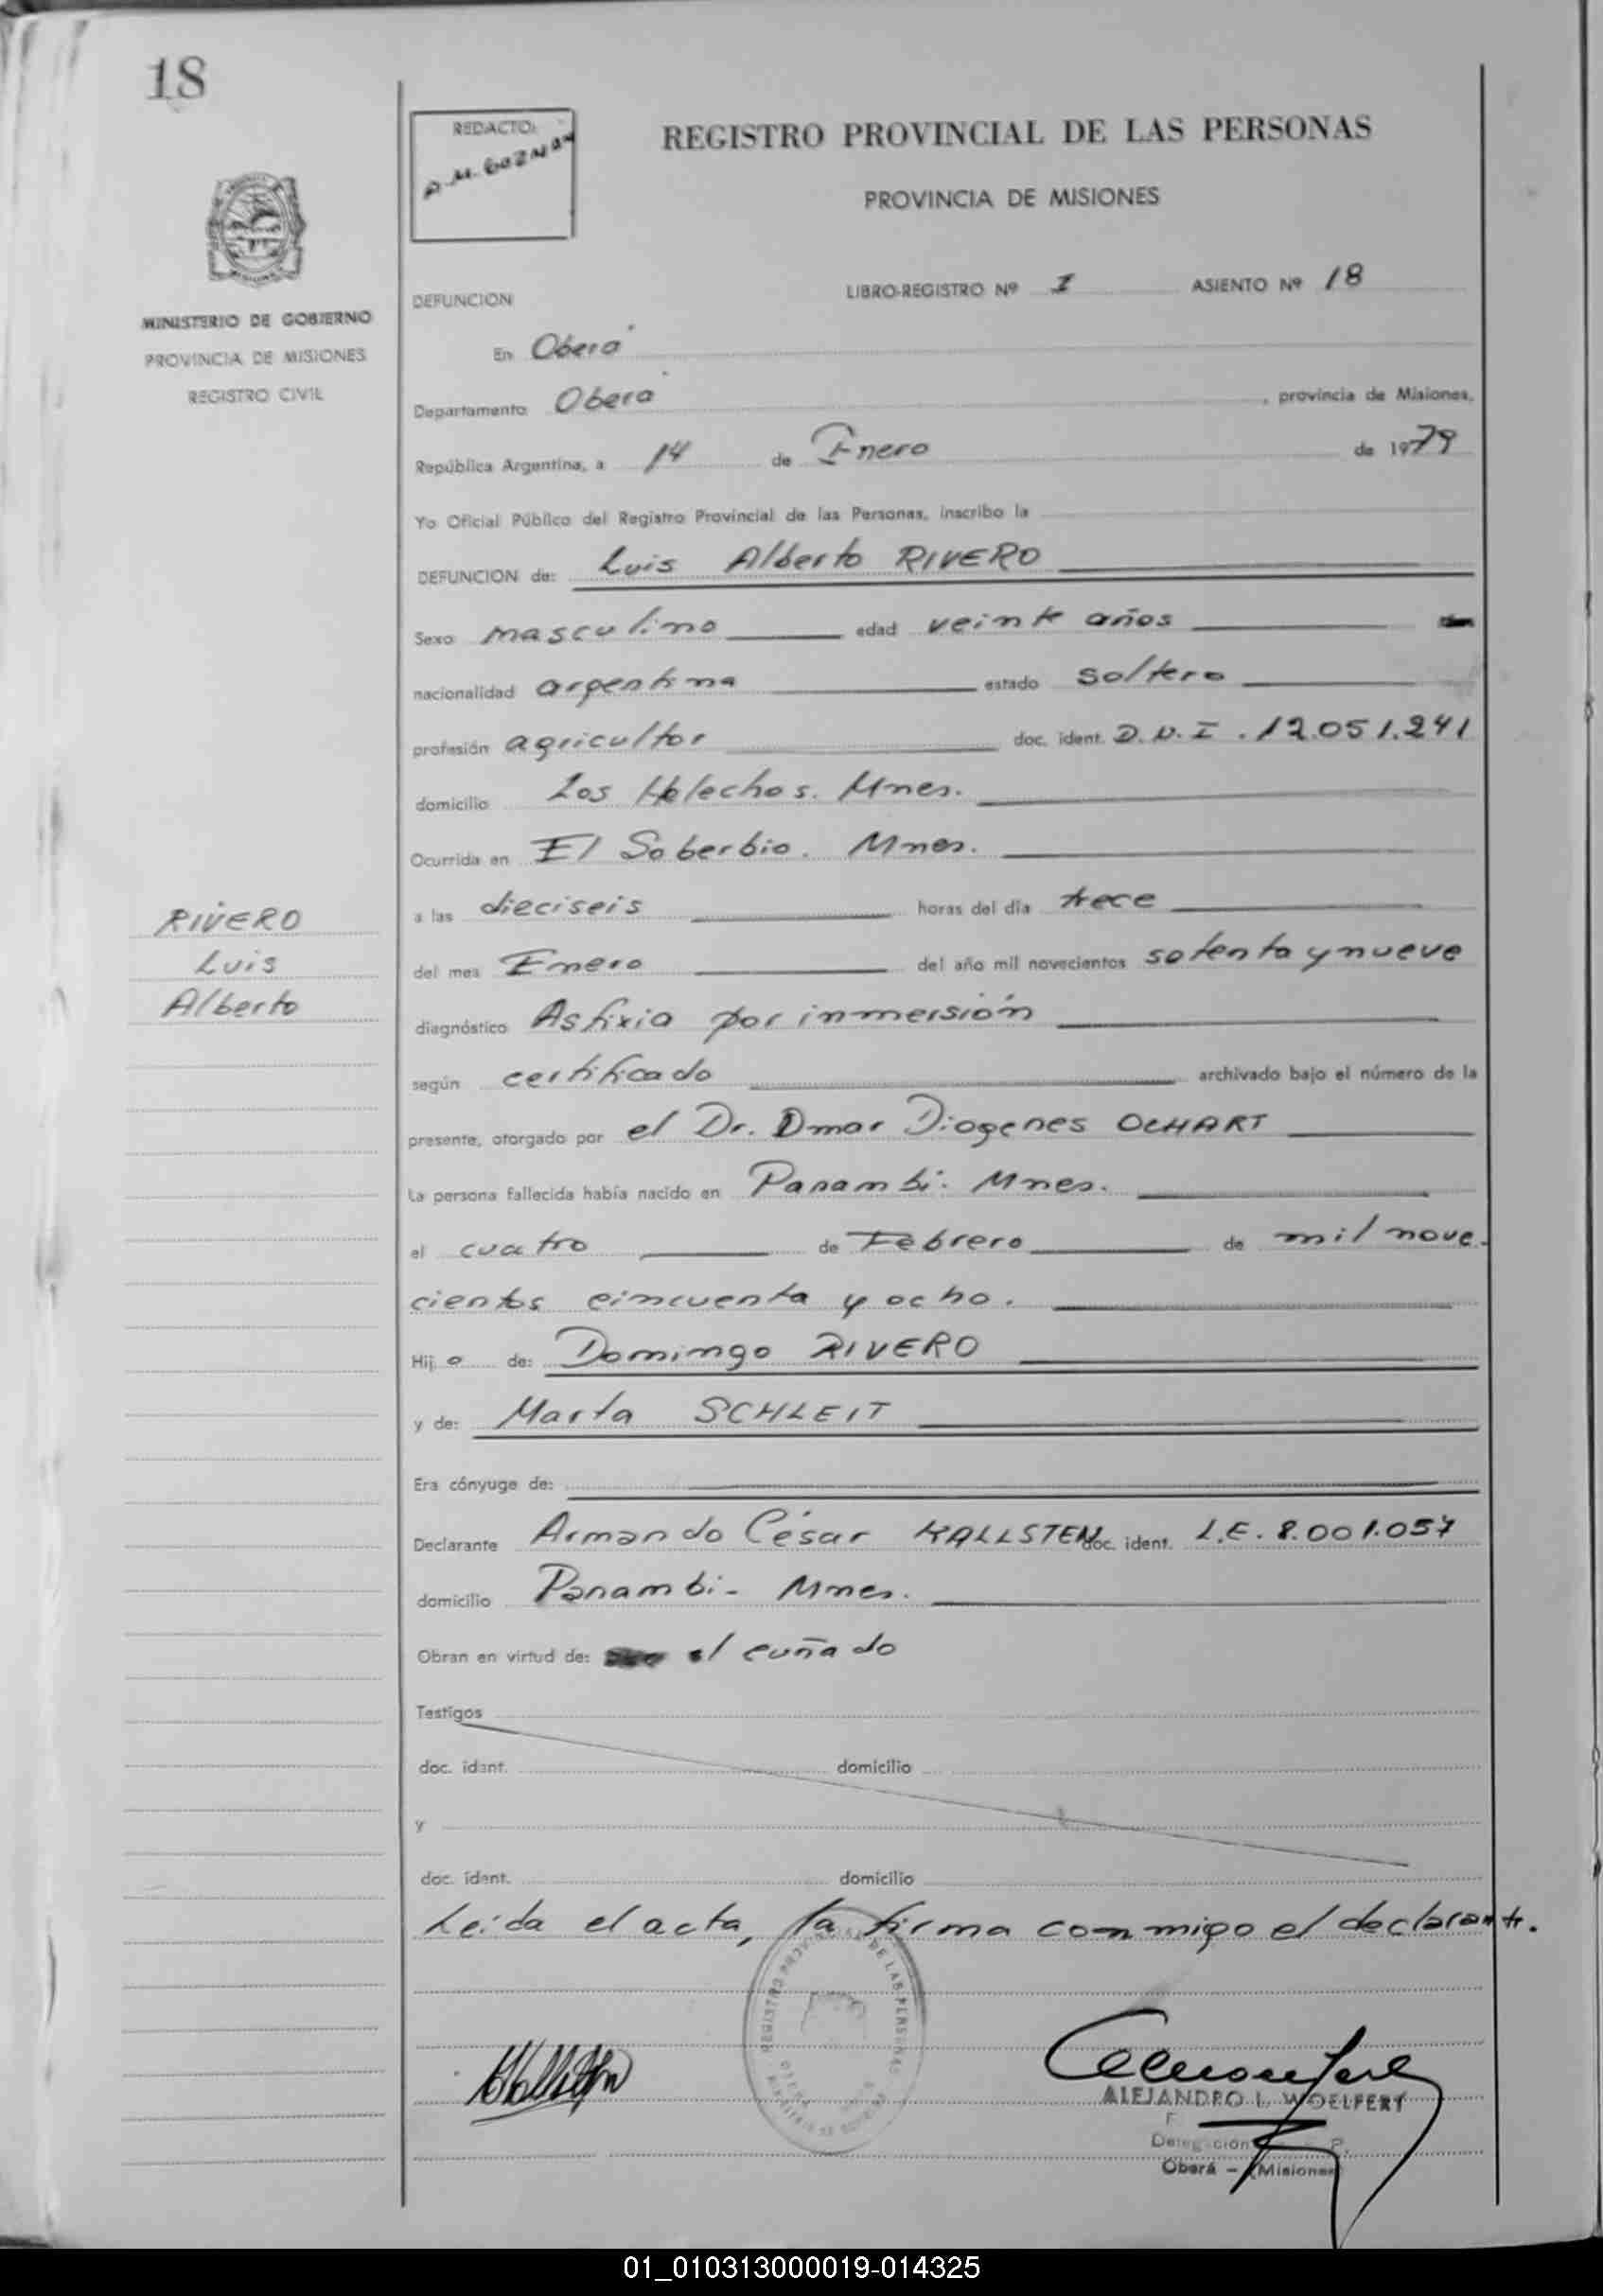 18
REDACTO:
REGISTRO PROVINCIAL DE LAS PERSONAS
PROVINCIA DE MISIONES
MINISTERIO DE GOBIERNO
PROVINCIA DE MISIONES
REGISTRO CIVIL
DEFUNCION
LIBRO-REGISTRO Nº I ASIENTO Nº 18
En Oberá
Departamento Oberá , provincia de Misiones,
República Argentina, a 14 de Enero de 1979
Yo Oficial Público del Registro Provincial de las Personas, inscribo la
DEFUNCION de: Luis Alberto RIVERO
Sexo masculino edad veinte años
nacionalidad argentina estado soltero
profesión agricultor doc. ident. D.N.I. 12.051.241
domicilio Los Helechos. Mnes.
Ocurrida en El Soberbio. Mnes.
a las dieciseis horas del día trece
del mes Enero del año mil novecientos setenta y nueve
diagnóstico Asfixia por inmersión
según certificado archivado bajo el número de la
presente, otorgado por el Dr. Omar Diogenes OLHART
La persona fallecida había nacido en Panambi. Mnes.
el cuatro de Febrero de mil nove-
cientos cincuenta y ocho.
Hijo de: Domingo RIVERO
y de: Marta SCHLEIT
Era cónyuge de:
Declarante Armando César KALLSTEN doc. ident. L.E. 8.001.057
domicilio Panambi - Mnes.
Obran en virtud de: el cuñado
Testigos
doc. ident. domicilio
y
doc. ident. domicilio
Leída el acta, la firma conmigo el declarante.
RIVERO
Luis
Alberto
REGISTRO PROVINCIAL DE LAS PERSONAS
ALEJANDRO L. WOELFERT
Delegación
Oberá - (Misiones)
01_010313000019-014325